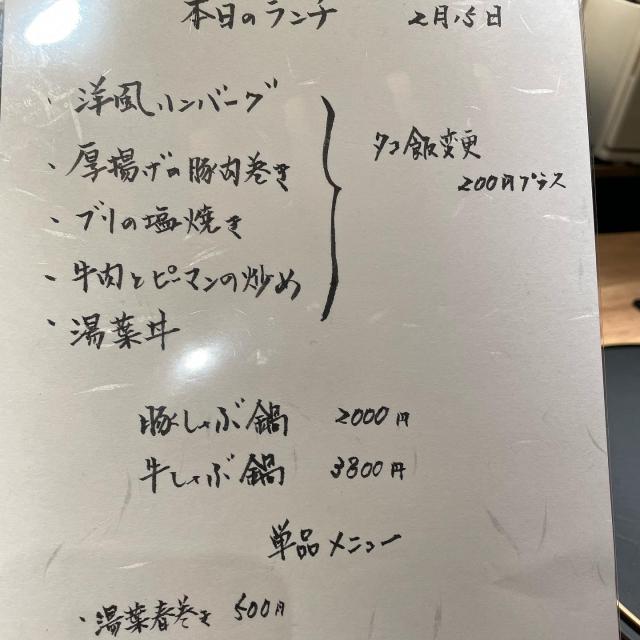 本日のランチ 2月15日
・洋風ハンバーグ
・厚揚げの豚肉巻き
・ブリの塩焼き
・牛肉とピーマンの炒め
・湯葉丼
タコ飯変更
200円プラス
豚しゃぶ鍋 2000円
牛しゃぶ鍋 3800円
単品メニュー
・湯葉春巻き 500円